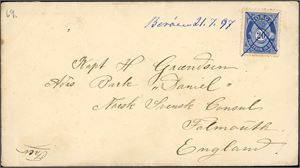 69.
Borøen 21.7.97
20
Kapt H Grændsen
Adrs Bark "Daniel"
Norsk Svensk Consul
Falmouth.
England.